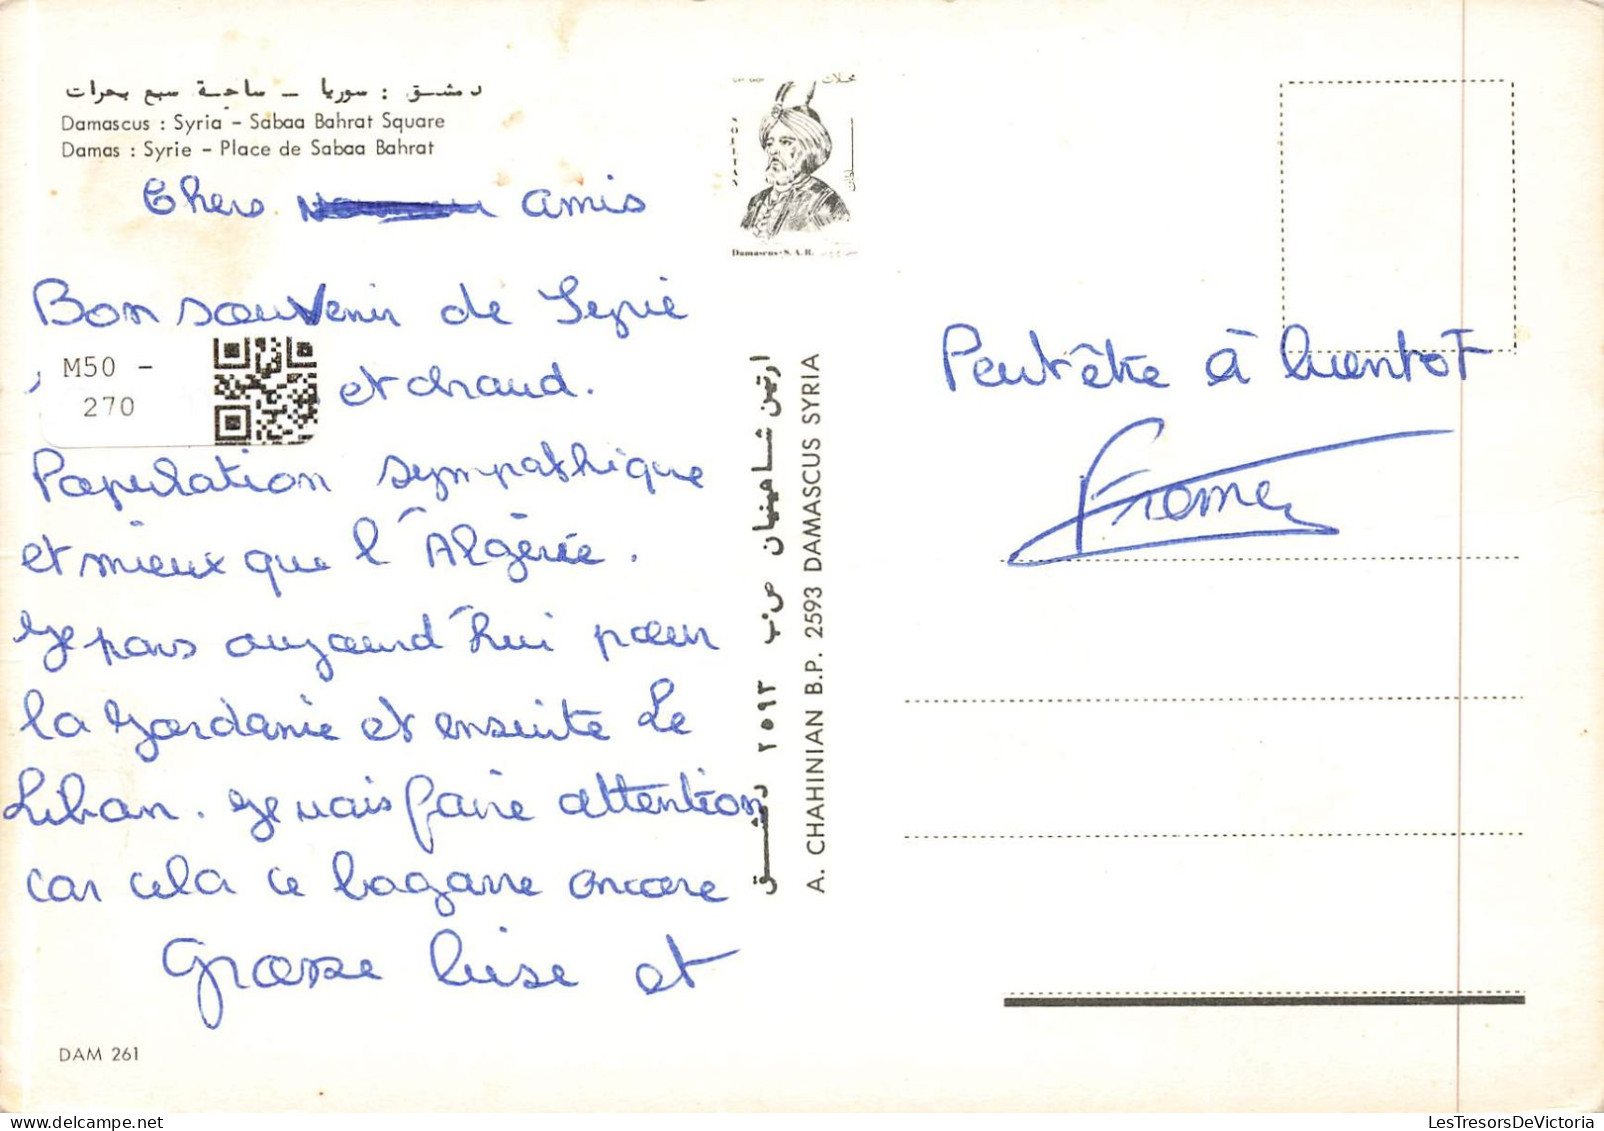 دمشـق : سوريا – ساحـة سبع بحرات
Damascus : Syria – Sabaa Bahrat Square
Damas : Syrie – Place de Sabaa Bahrat
Chers amis
Bon souvenir de Syrie
M50 -
270
et chaud.
Population sympathique
et mieux que l'Algérie.
Je pars aujourd'hui pour
la Jordanie et ensuite Le
Liban. Je vais faire attention
car cela ce bagarre encore
Grosse bise et
DAM 261
محلات
Damascus-S.A.R.
ارتين شاهينيان ص.ب ٢٥٩٣ دمشـق
A. CHAHINIAN B.P. 2593 DAMASCUS SYRIA
Peut être à bientot
LesTresorsDeVictoria.com